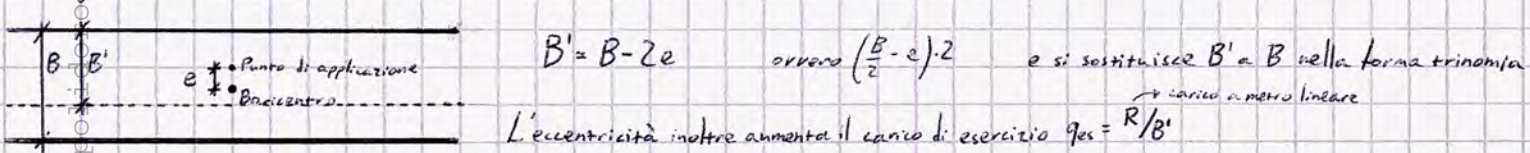 B B' e Punto di applicazione
Baricentro
B' = B - 2e ovvero (B/2 - e)·2 e si sostituisce B' a B nella forma trinomia
carico a metro lineare
L'eccentricità inoltre aumenta il carico di esercizio qes = R/B'